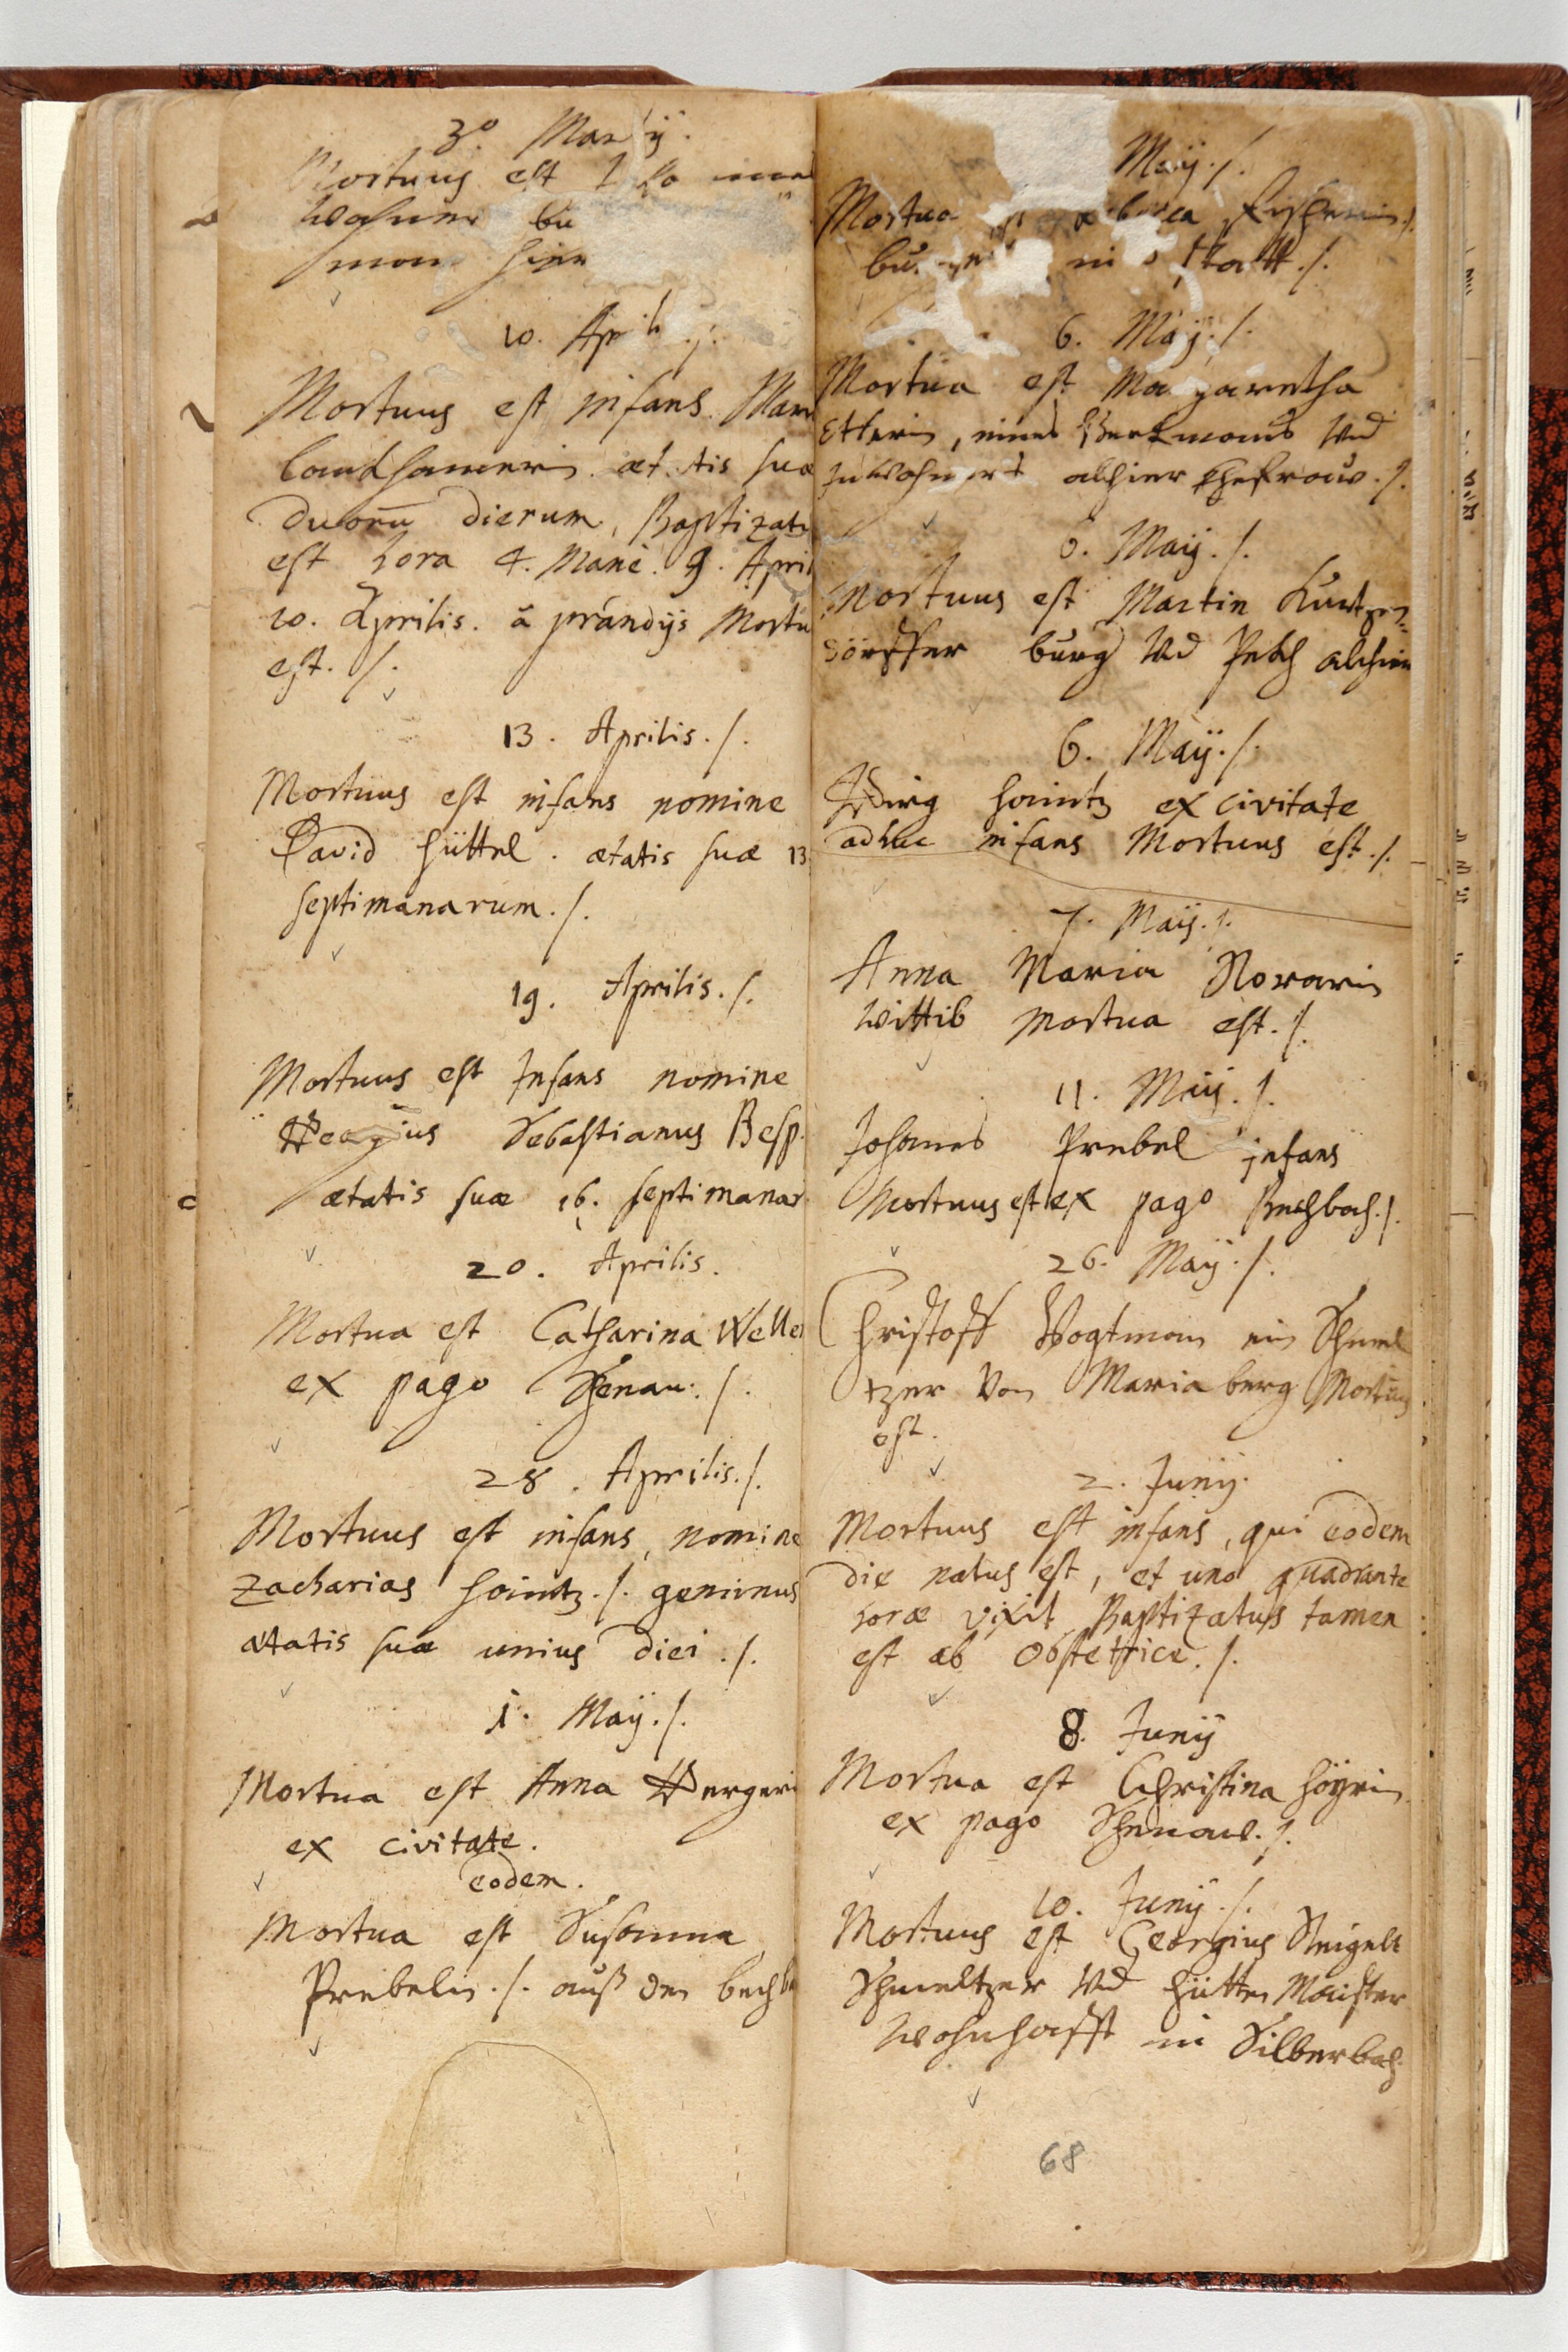 3º. Martij.
Mortuus est
Wohner bu
man hier
10. April ./.
Mortuus est infans Mar
Landhamerin ætatis suæ
duorū dierum, Baptizatu
est hora 4. Mané. 9. April
10. Aprilis. à prandijs Mortu
est. ./.
13. Aprilis ./.
Mortuus est infans nomine
David Hüttel. ætatis suæ 13
septimanarum ./.
19. Aprilis ./.
Mortuus est Infans nomine
Georgius Sebastianus Besp.
ætatis suæ 16. septimanar
20. Aprilis.
Mortua est Catharina Weller
ex pago Schenau ./.
28. Aprilis ./.
Mortuus est infans, nomine
Zacharias Haintz ./. geminus
ætatis suæ unius diei ./.
1. Maij ./.
Mortua est Anna Hergeri
ex civitate.
eodem.
Mortua est Susanna
Prebelin ./. auß den bechb
Maij ./.
Mortua est Fischerin ./.
bu
6. Maij ./.
Mortua est Margaretha
Etterin, eines Berkmans Vnd
InWohners alhier Ehefraw ./.
6. Maij ./.
Mortuus est Martin Kuntzen=
dörffer burg Vnd Peckh alhier
6. Maij ./.
Görg Haintz ex civitate
adhuc infans Mortuus est ./.
7. Maij ./.
Anna Maria Rorarin
Wittib Mortua est ./.
11. Maij ./.
Johannes Prebel infans
Mortuus est ex pago Bechbach ./.
26. Maij ./.
Christoff Vogtman ein Schmel
tzer Von Maria berg Mortuus
est.
2. Junij.
Mortuus est infans, qui eodem
die natus est, et uno quadrante
horæ vixit, Baptizatus tamen
est ab Obstetrice ./.
8. Junij
Mortua est Christina Höyrin
ex pago Schenaw ./.
10. Junij ./.
Mortuus est Georgius Steigelt
Schmeltzer Vnd Hütten Maister
Wohnhafft in Silberbach
68